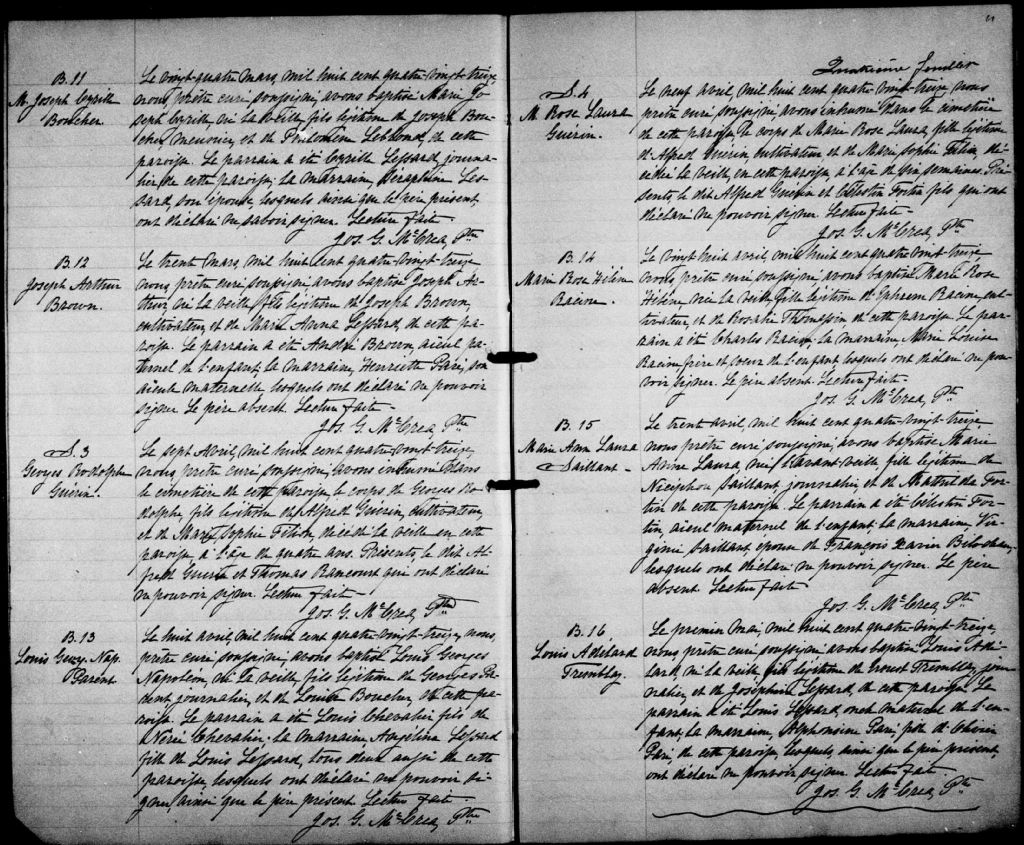 B.11
M. Joseph Cyrille
Boucher.
Le vingt-quatre Mars, mil huit cent quatre-vingt-treize
nous, prêtre curé soussigné, avons baptisé Marie Jo-
seph Cyrille, né la veille, fils légitime de Joseph Bou-
cher, menuisier, et de Philomène Leblond, de cette
paroisse. Le parrain a été Cyrille Lessard, journa-
lier, de cette paroisse; la marraine, Séraphine Les-
sard, son épouse, lesquels ainsi que le père présent
ont déclaré ne savoir signer. Lecture faite
Jos. G. McCrea, Ptre
B.12
Joseph Arthur
Brown.
Le trente Mars, mil huit cent quatre-vingt-treize
nous, prêtre curé soussigné avons baptisé Joseph Ar-
thur, né la veille, fils légitime de Joseph Brown,
cultivateur, et de Marie Anna Lessard, de cette pa-
roisse. Le parrain a été André Brown, aïeul pa-
ternel de l'enfant, la marraine, Henriette Paré, son
aïeule maternelle lesquels ont déclaré ne pouvoir
signer. Le père absent. Lecture faite -
Jos. G. McCrea, Ptre
S.3
Georges Rodolphe
Guérin.
Le sept Avril, mil huit cent quatre-vingt-treize,
nous, prêtre curé soussigné, avons inhumé dans
le cimetière de cette paroisse, le corps de Georges Ro-
dolphe, fils légitime de Alfred Guérin, cultivateur,
et de Marie Sophie Filion, décédé la veille en cette
paroisse à l'âge de quatre ans. Présents, le dit Al-
fred Guérin et Thomas Rancourt qui ont déclaré
ne pouvoir signer. Lecture faite -
Jos. G. McCrea, Ptre
B.13
Louis Georg. Nap.
Parent
Le huit avril, mil huit cent quatre-vingt-treize, nous,
prêtre curé soussigné, avons baptisé Louis Georges
Napoléon, né la veille, fils légitime de Georges Pa-
rent journalier, et de Louise Boucher, de cette pa-
roisse. Le parrain a été Louis Chevalier, fils de
Néré Chevalier, la marraine Angelina Lessard
fille de Louis Lessard, tous deux aussi de cette
paroisse lesquels ont déclaré ne pouvoir si-
gner, ainsi que le père présent Lecture faite.
Jos. G. McCrea, Ptre
S.4
M. Rose Laura
Guérin.
Le neuf avril, mil huit cent quatre-vingt-treize, nous
prêtre curé, soussigné, avons inhumé dans le cimetière
de cette paroisse, le corps de Marie Rose Laura, fille légitime
d'Alfred Guérin, cultivateur, et de Marie Sophie Filion, dé-
cédée la veille, en cette paroisse à l'âge de semaines. Pré-
sents, le dit Alfred Guérin et Célestin Fortin fils qui ont
déclaré ne pouvoir signer. Lecture faite -
Jos. G. McCrea, Ptre
B.14
Marie Rose Hélène
Racine.
Le vingt huit avril, mil huit cent quatre-vingt-treize
nous, prêtre curé soussigné avons baptisé Marie Rose
Hélène, née la veille, fille légitime d'Ephrem Racine, cul-
tivateur, et de Rosalie Thomassin de cette paroisse. Le par-
rain a été Charles Racine, la marraine, Marie Louise
Racine, frère et soeur de l'enfant lesquels ont déclaré ne pou-
voir signer. Le père absent. Lecture faite -
Jos. G. McCrea, Ptre
B.15
Marie Ann Laura
Saillant -
Le trente avril, mil huit cent quatre-vingt-treize
nous prêtre curé, soussigné, avons baptisé Marie
Anne Laura, née l'avant-veille, fille légitime de
Nicéphore Saillant journalier et de Mathilde For-
tin de cette paroisse. Le parrain a été Célestin For-
tin, aïeul maternel de l'enfant, la marraine, Vir-
ginie Saillant épouse de François Xavier Bilodeau,
lesquels ont déclaré ne pouvoir signer. Le père
absent. Lecture faite
Jos. G. McCrea, Ptre
B.16
Louis Adélard
Tremblay.
Le premier Mai, mil huit cent quatre-vingt-treize,
nous, prêtre curé soussigné avons baptisé Louis Adé-
lard, né la veille, fils légitime de Ernest Tremblay, jour-
nalier, et de Joséphine Lessard, de cette paroisse. Le
parrain a été Louis Lessard, oncle maternel de l'en-
fant, la marraine, Alphonsine Paré, fille de
Paré, de cette paroisse, lesquels ainsi que le père présent,
ont déclaré ne pouvoir signer. Lecture faite.
Jos. G. McCrea, Ptre